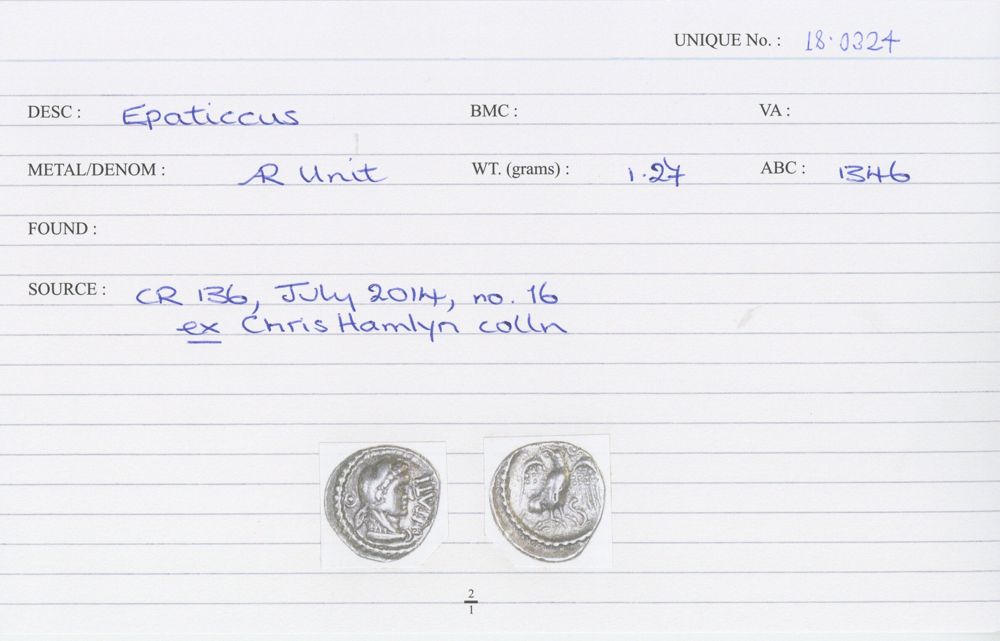 UNIQUE No. : 18.0324
DESC : Epaticcus BMC : VA :
METAL/DENOM : AR Unit WT. (grams) : 1.27 ABC : 1346
FOUND :
SOURCE : CR 136, July 2014, no. 16
ex Chris Hamlyn colln
2
1